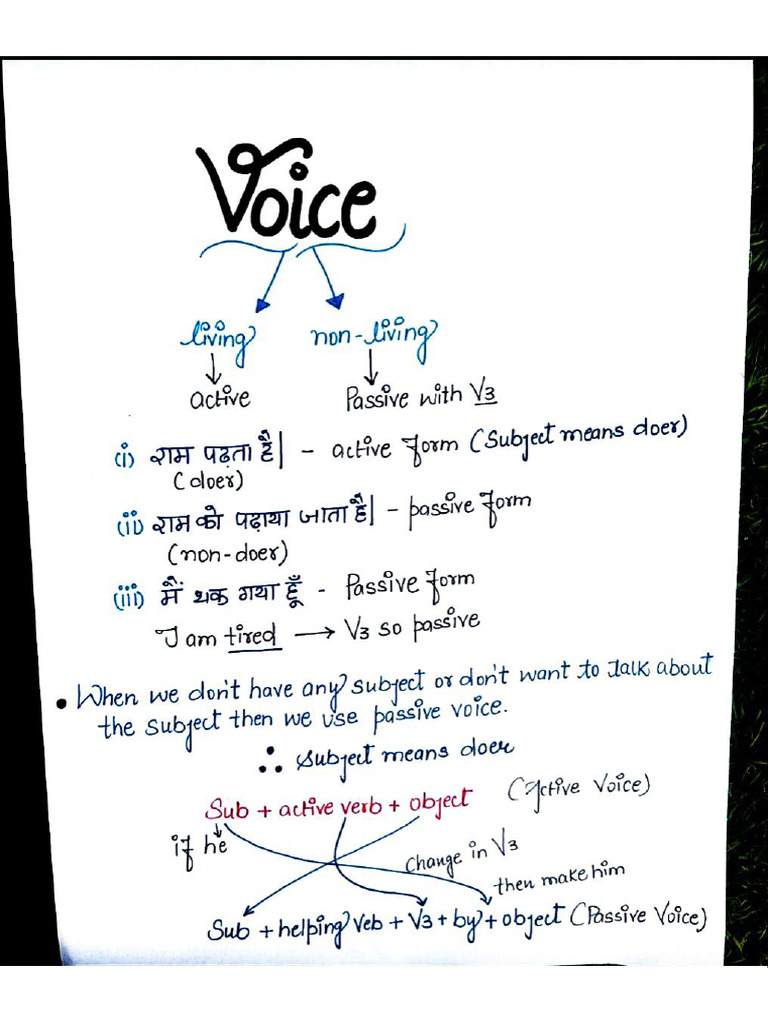 Voice
living non-living
active Passive with V3
(i) राम पढ़ता है| - active form (Subject means doer)
(doer)
(ii) राम को पढ़ाया जाता है| - passive form
(non-doer)
(iii) मैं थक गया हूँ - Passive form
I am tired → V3 so passive
• When we don't have any subject or don't want to talk about
the subject then we use passive voice.
∴ subject means doer
Sub + active verb + object (Active Voice)
if he
Change in V3
then make him
Sub + helping veb + V3 + by + object (Passive Voice)